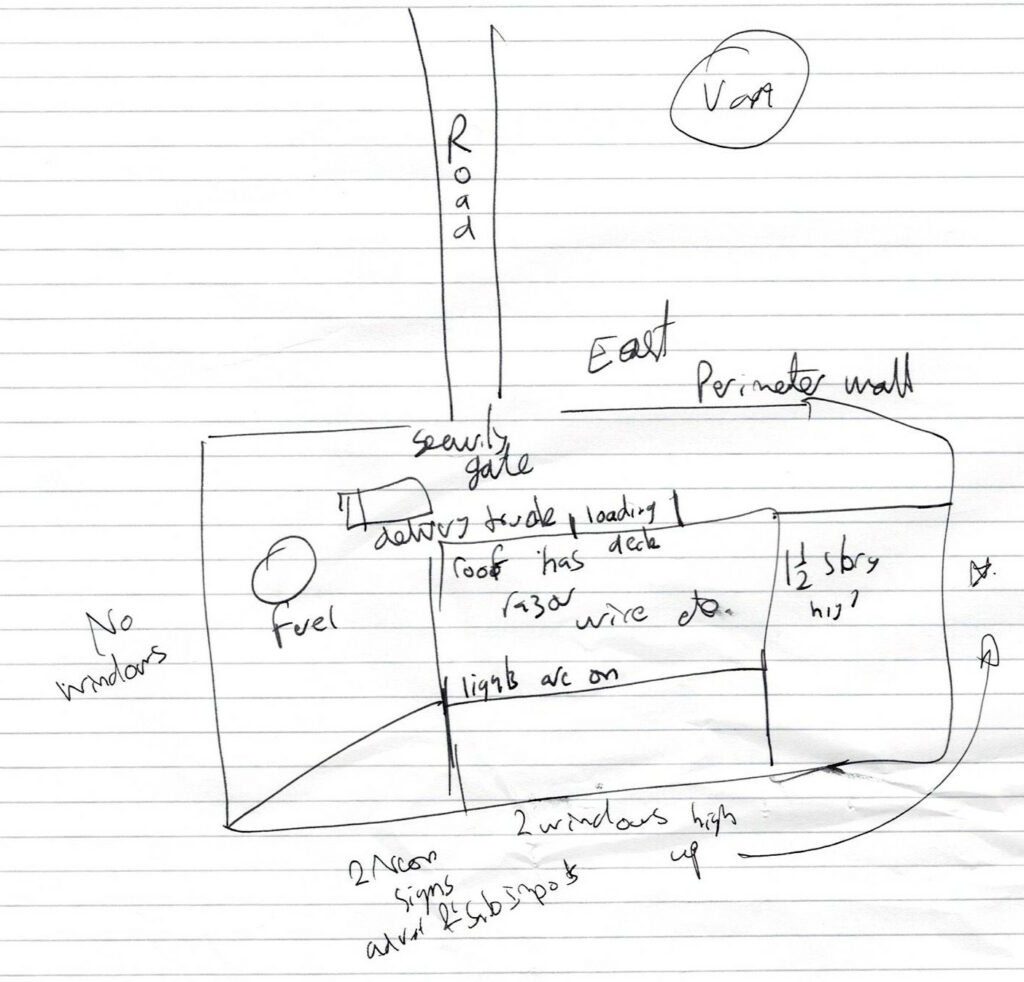 Road
East
Perimeter wall
security
gate
delivery truck
loading
deck
roof has
razor
wire etc.
1 1/2 story
high
fuel
No
windows
lights are on
2 windows high
up
2 Neon
signs